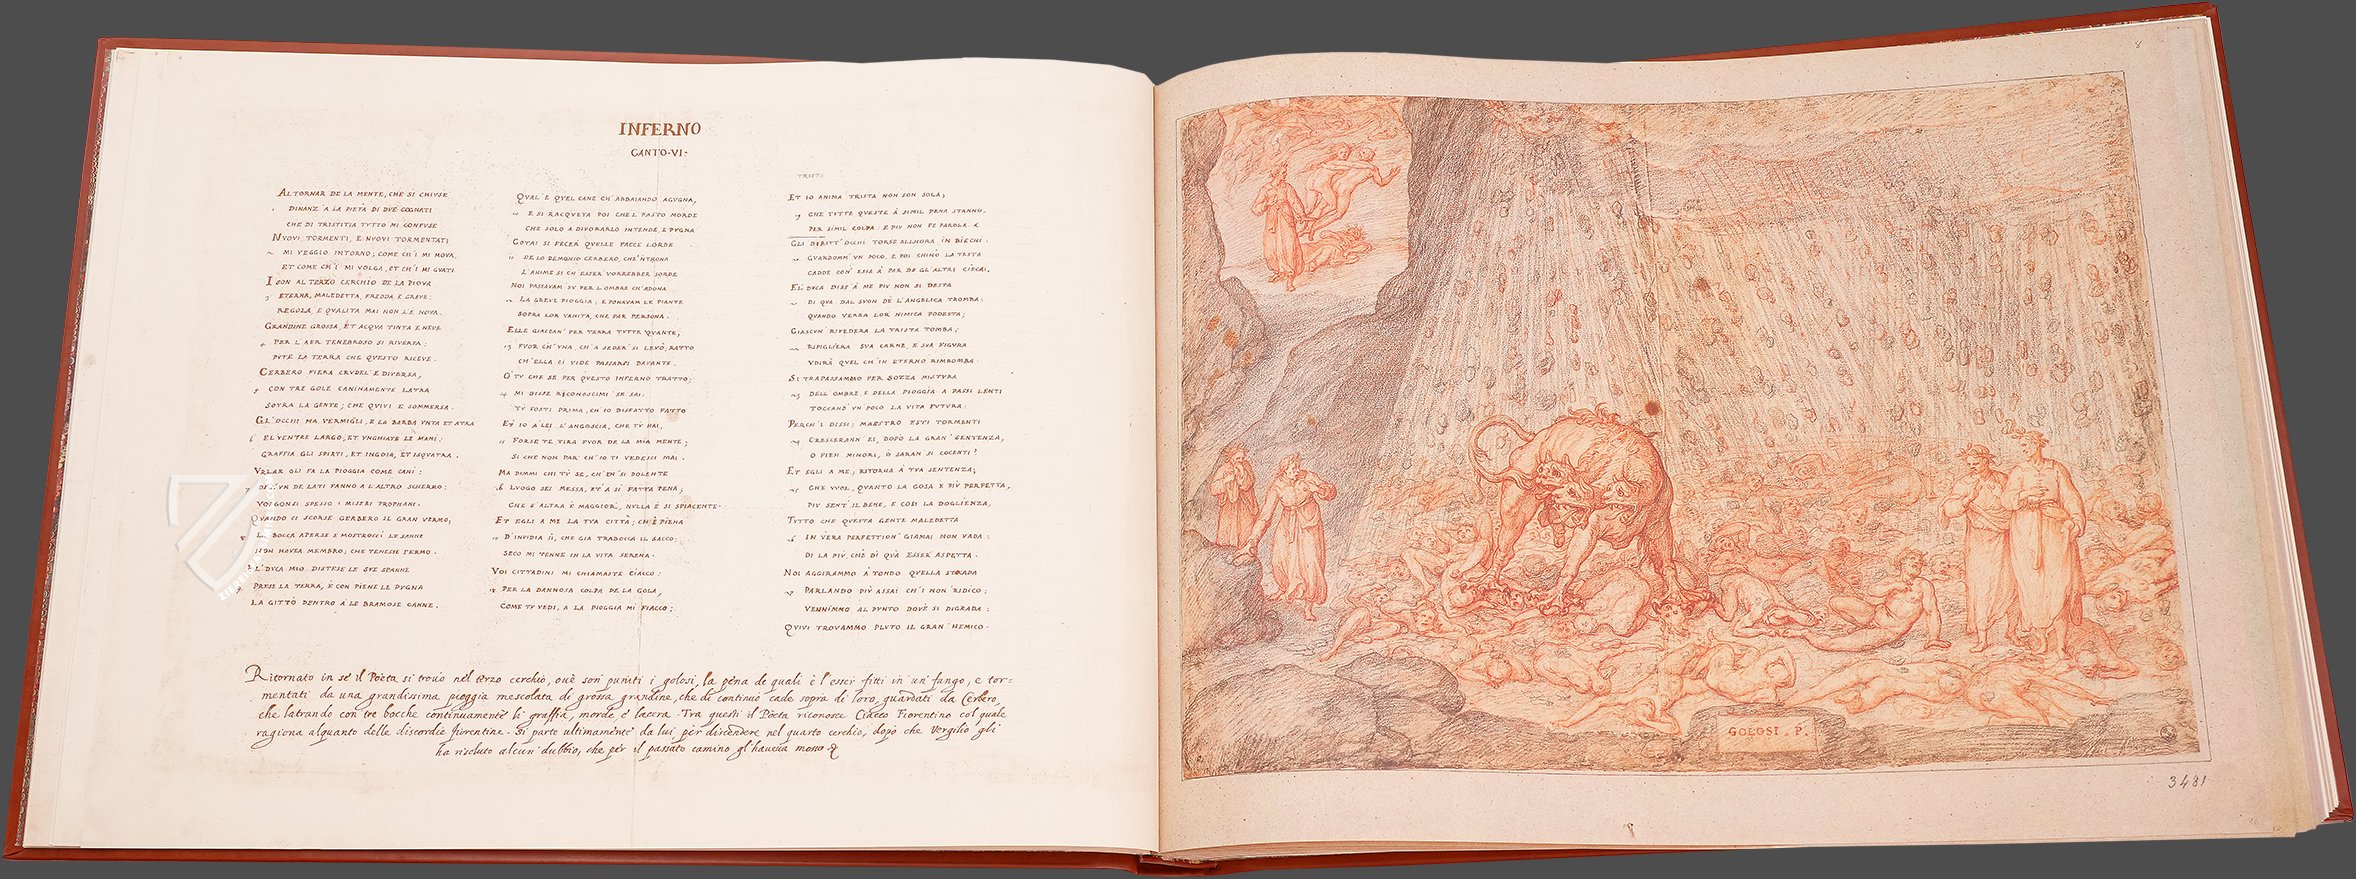 INFERNO
CANTO·VI·
AL TORNAR DE LA MENTE, CHE SI CHIVSE
DINANZ'A LA PIETÀ DI DVE COGNATI
CHE DI TRISTITIA TVTTO MI CONFVSE
NVOVI TORMENTI, E NVOVI TORMENTATI
MI VEGGIO INTORNO; COME CH'I MI MOVA,
ET COME CH'I MI VOLGA, ET CH'I MI GVATI
I SON AL TERZO CERCHIO DE LA PIOVA
ETERNA, MALEDETTA, FREDDA E GREVE:
REGOLA, E QVALITÀ MAI NON L'È NOVA.
GRANDINE GROSSA, ET ACQVA TINTA E NEVE
PER L'AER TENEBROSO SI RIVERSA:
PVTE LA TERRA CHE QVESTO RICEVE.
CERBERO FIERA CRVDEL'E DIVERSA,
CON TRE GOLE CANINAMENTE LATRA
SOVRA LA GENTE; CHE QVIVI È SOMMERSA.
GL'OCCHI HA VERMIGLI, E LA BARBA VNTA ET ATRA
EL VENTRE LARGO, ET VNGHIATE LE MANI:
GRAFFIA GLI SPIRTI, ET INGOIA, ET ISQVATRA.
VRLAR GLI FA LA PIOGGIA COME CANI:
DE L'VN DE LATI FANNO A L'ALTRO SCHERMO:
VOLGONSI SPESSO I MISERI PROPHANI.
QVANDO CI SCORSE CERBERO IL GRAN VERMO;
LE BOCCA APERSE E MOSTROCCI LE SANNE
NON HAVEA MEMBRO; CHE TENESSE FERMO.
EL DVCA MIO DISTESE LE SVE SPANNE
PRESE LA TERRA, E CON PIENE LE PVGNA
LA GITTÒ DENTRO A LE BRAMOSE CANNE.
QVAL È QVEL CANE CH'ABBAIANDO AGVGNA,
E SI RACQVETA POI CHE L PASTO MORDE
CHE SOLO A DIVORARLO INTENDE, E PVGNA
COTAI SI FECER QVELLE FACCE LORDE
DE LO DEMONIO CERBERO, CHE'NTRONA
L'ANIME SI CH'ESSER VORREBBER SORDE
NOI PASSAVAM SV PER L'OMBRE CH'ADONA
LA GREVE PIOGGIA; E PONAVAM LE PIANTE
SOPRA LOR VANITÀ, CHE PAR PERSONA.
ELLE GIACEAN' PER TERRA TVTTE QVANTE,
FVOR CH'VNA, CH'A SEDER SI LEVÒ, RATTO
CH'ELLA CI VIDE PASSARSI DAVANTE.
O TV CHE SE PER QVESTO INFERNO TRATTO;
MI DISSE RICONOSCIMI SE SAI:
TV FOSTI PRIMA, CH IO DISFATTO FATTO
ET IO A LEI. L'ANGOSCIA, CHE TV HAI,
FORSE TE TIRA FVOR DE LA MIA MENTE;
SI CHE NON PAR CH'IO TI VEDESSI MAI.
MA DIMMI CHI TV SE, CH'EN SI DOLENTE
LVOGO SEI MESSA, ET'A SI FATTA PENA;
CHE S'ALTRA È MAGGIOR, NVLLA È SI SPIACENTE·
ET EGLI A ME LA TVA CITTÀ; CH'È PIENA
D'INVIDIA SÌ, CHE GIÀ TRABOCCA IL SACCO:
SECO MI TENNE IN LA VITA SERENA.
VOI CITTADINI MI CHIAMASTE CIACCO:
PER LA DANNOSA COLPA DE LA GOLA,
COME TV VEDI, A LA PIOGGIA MI FIACCO:
TRISTA
ET IO ANIMA TRISTA NON SON SOLA;
CHE TVTTE QVESTE À SIMIL PENA STANNO,
PER SIMIL COLPA. E PIV NON FE PAROLA.
GLI DIRITT'OCCHI TORSE ALLHORA IN BIECHI:
GVARDOMM'VN POCO, E POI CHINÒ LA TESTA
CADDE CON ESSA À PAR DE GL'ALTRI CIECHI,
EL DVCA DISS'À ME PIV NON SI DESTA
DI QVA DAL SVON DE L'ANGELICA TROMBA:
QVANDO VERRÀ LOR NIMICA PODESTÀ;
CIASCVN RIVEDERÀ LA TRISTA TOMBA;
RIPIGLIERÀ SVA CARNE, E SVA FIGVRA
VDIRÀ QVEL CH'IN ETERNO RIMBOMBA.
SI TRAPASSAMMO PER SOZZA MISTVRA
DELL OMBRE E DELLA PIOGGIA A PASSI LENTI
TOCCAND VN POCO LA VITA FVTVRA:
PERCH'I DISSI; MAESTRO ESTI TORMENTI
CRESCERANN EI, DOPO LA GRAN' SENTENZA,
O FIEN MINORI, Ò SARAN SI COCENTI?
ET EGLI A ME, RITORNA À TVA SENTENZA;
CHE VVOL, QVANTO LA COSA È PIV PERFETTA,
PIV SENT'IL BENE, E COSÌ LA DOGLIENZA,
TVTTO CHE QVESTA GENTE MALEDETTA
IN VERA PERFETTION' GIAMAI NON VADA:
DI LÀ PIV CHE DI QVÀ ESSER'ASPETTA.
NOI AGGIRAMMO À TONDO QVELLA STRADA
PARLANDO PIV ASSAI CH'I NON RIDICO:
VENNIMMO AL PVNTO DOVE SI DIGRADA:
QVIVI TROVAMMO PLVTO IL GRAN'NEMICO.
Ritornato in sè il Poeta si trouò nel terzo cerchio, oue son' puniti i golosi, la pena de quali è l'esser fitti in un' fango, e tor=
mentati da una grandissima pioggia mescolata di grossa grandine, che di continuo cade sopra di loro, guardati da Cerbero,
che latrando con tre bocche continuamente li graffia, morde, e lacera. Tra questi il Poeta riconosce Ciacco Fiorentino col quale
ragiona alquanto delle discordie fiorentine. Si parte ultimamente da lui per discendere nel quarto cerchio, dopo che Vergilio gli
ha risoluto alcun' dubbio, che per il passato camino gl'haueua mosso.
8
GOLOSI . P.
3481